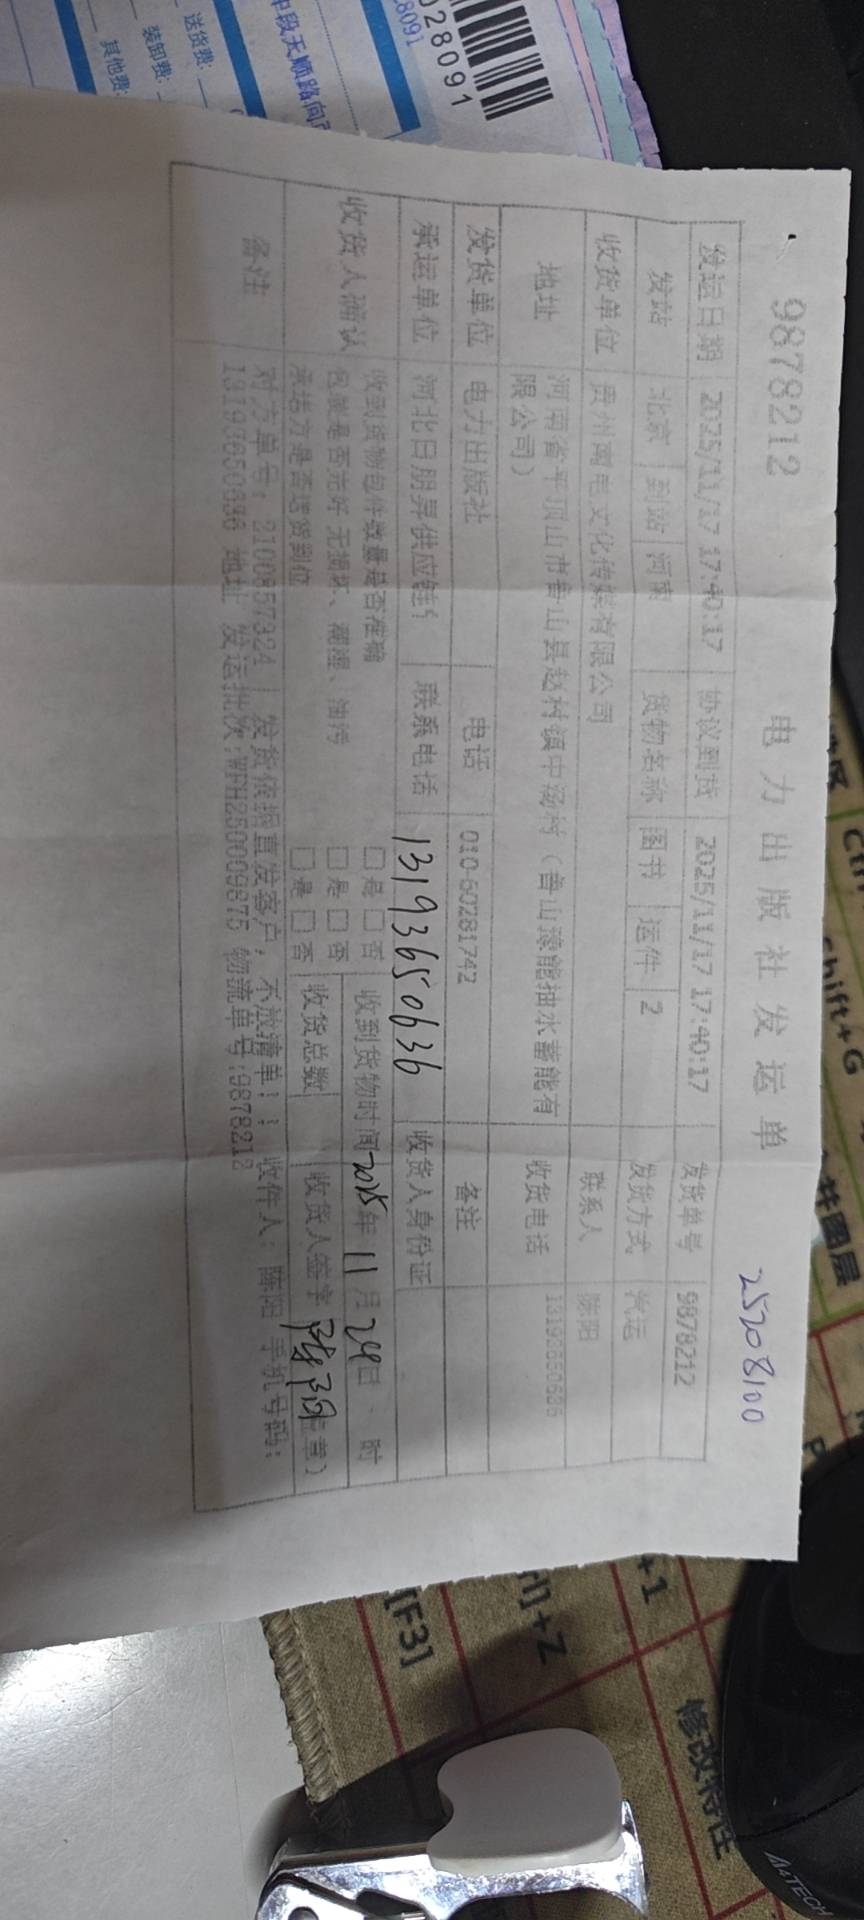 9878212 电力出版社发运单 25208100
发运日期 2025/11/17 17:40:17 协议到货 2025/11/17 17:40:17 发货单号 9878212
发站 北京 到站 河南 货物名称 图书 运件 2 发货方式 汽运
收货单位 贵州南电文化传媒有限公司 联系人 陈阳
地址 河南省平顶山市鲁山县赵村镇中汤村（鲁山豫能抽水蓄能有
限公司） 收货电话 13193650636
发货单位 电力出版社 电话 010-60281742 备注
承运单位 河北日朋昇供应链 联系电话 13193650636 收货人身份证
收货人确认 收到货物包件数量是否准确 □是 □否 收到货物时间 2025年 11月 24日 时
包装是否完好 无损坏、潮湿、油污 □是 □否
承运方是否送货到位 □是 □否 收货总数 收货人签字 陈阳 章）
备注 对方单号：2100857324 | 发货依据直发客户，不放清单；；收件人：陈阳 手机号码：
13193650636 地址 发运批次:WFH250009875 物流单号:9878212
028091
8091
中段天顺路向
送货费：
装卸费：
其他费：
shift+G
+1
+Z
[F3]
修改特性
A4TECH